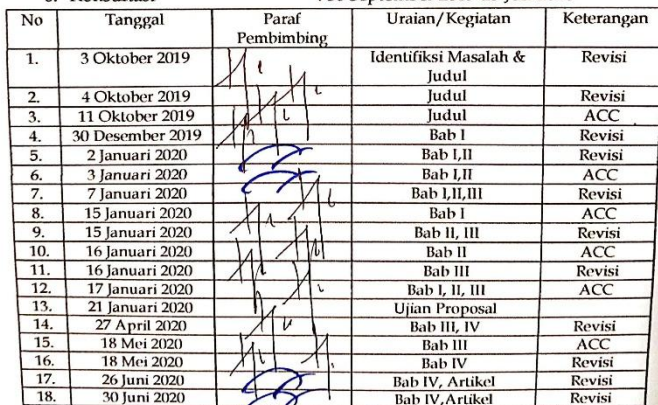 No Tanggal Paraf Pembimbing Uraian/Kegiatan Keterangan
1. 3 Oktober 2019 Identifiksi Masalah & Judul Revisi
2. 4 Oktober 2019 Judul Revisi
3. 11 Oktober 2019 Judul ACC
4. 30 Desember 2019 Bab I Revisi
5. 2 Januari 2020 Bab I,II Revisi
6. 3 Januari 2020 Bab I,II ACC
7. 7 Januari 2020 Bab I,II,III Revisi
8. 15 Januari 2020 Bab I ACC
9. 15 Januari 2020 Bab II, III Revisi
10. 16 Januari 2020 Bab II ACC
11. 16 Januari 2020 Bab III Revisi
12. 17 Januari 2020 Bab I, II, III ACC
13. 21 Januari 2020 Ujian Proposal
14. 27 April 2020 Bab III, IV Revisi
15. 18 Mei 2020 Bab III ACC
16. 18 Mei 2020 Bab IV Revisi
17. 26 Juni 2020 Bab IV, Artikel Revisi
18. 30 Juni 2020 Bab IV,Artikel Revisi